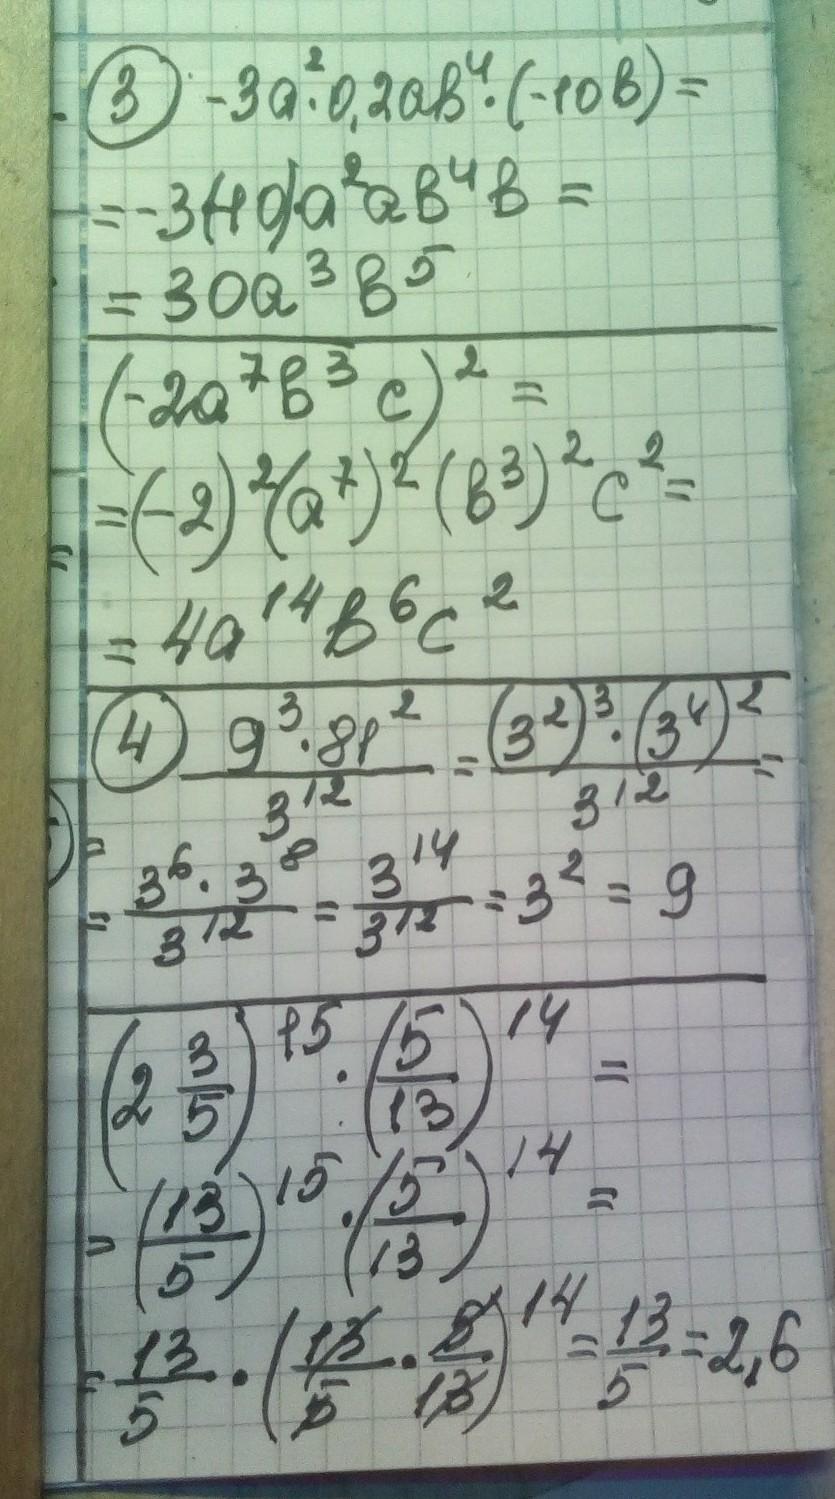 3) -3a²·0,2ab⁴·(-10b)=
=-3(-10)a²ab⁴b=
=30a³b⁵
(-2a⁷b³c)²=
=(-2)²(a⁷)²(b³)²c²=
=4a¹⁴b⁶c²
4) 9³·81²/3¹²=(3²)³·(3⁴)²/3¹²=
=3⁶·3⁸/3¹²=3¹⁴/3¹²=3²=9
(2 3/5)¹⁵·(5/13)¹⁴=
=(13/5)¹⁵·(5/13)¹⁴=
=13/5·(13/5·5/13)¹⁴=13/5=2,6